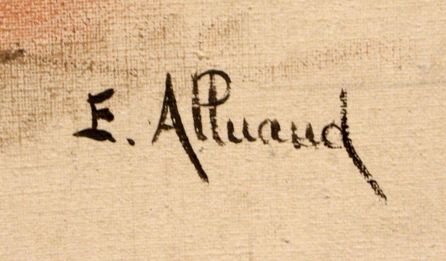 E. Alluaud